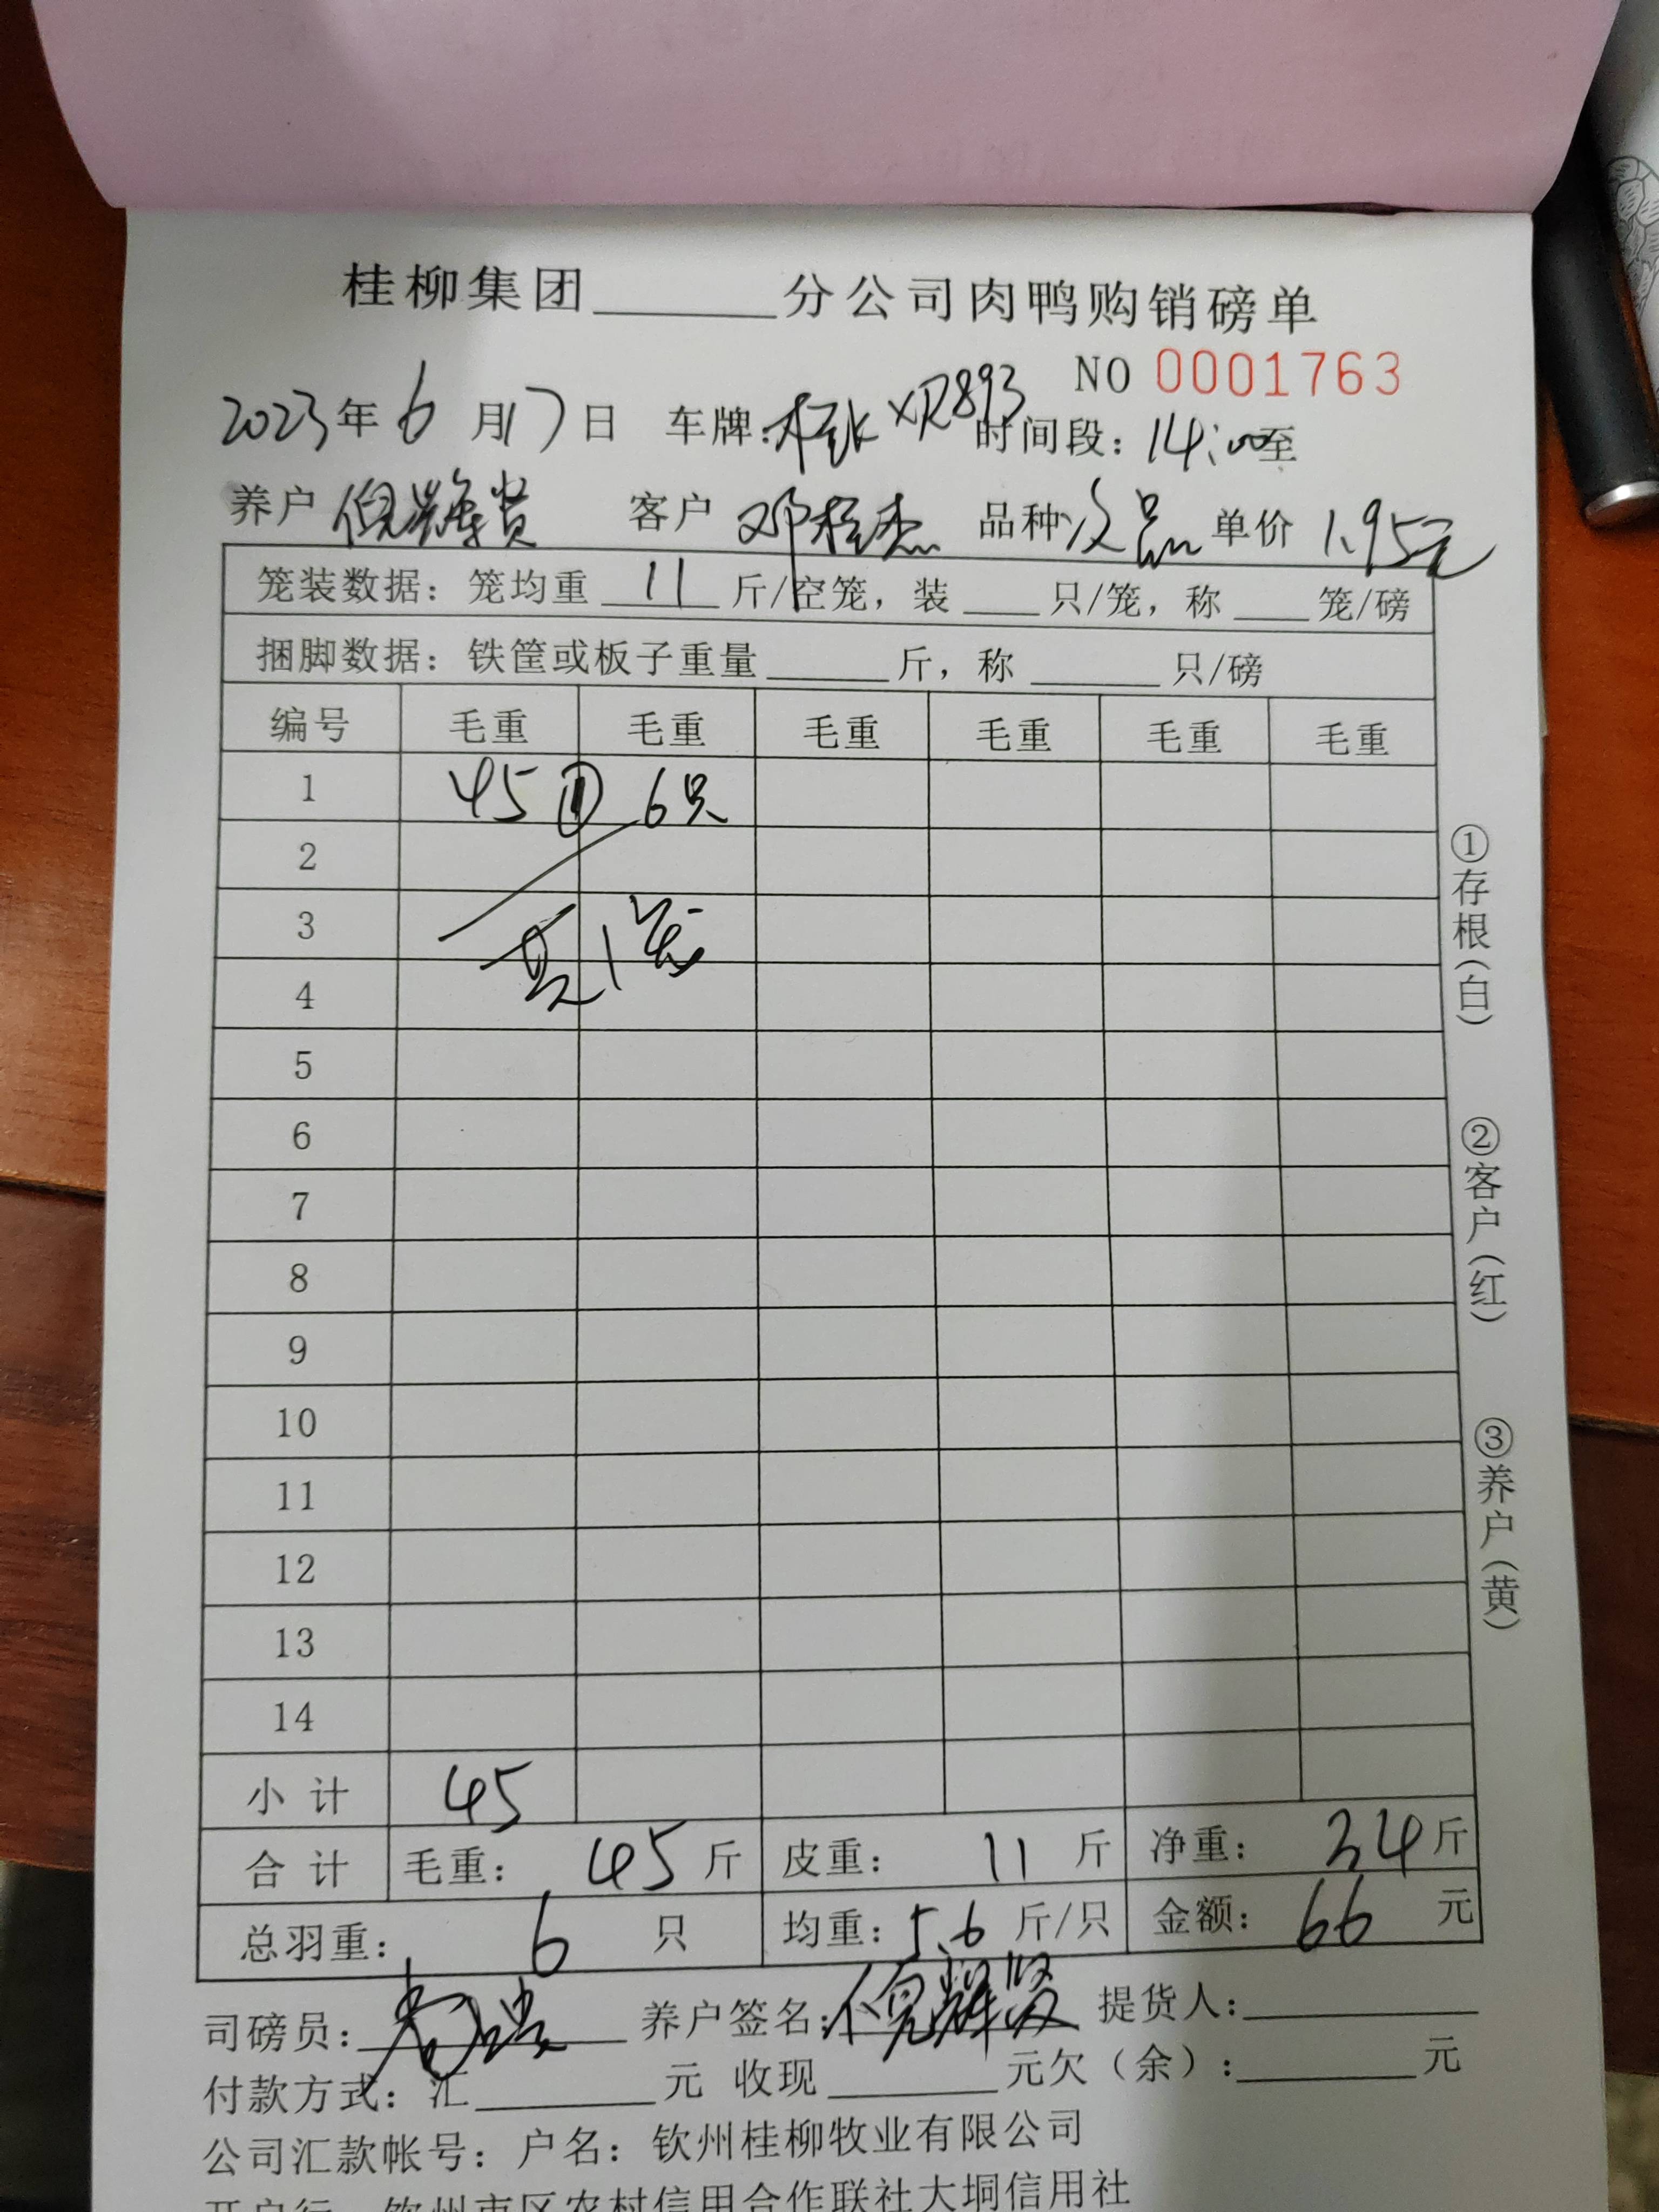 桂柳集团______分公司肉鸭购销磅单
NO 0001763
2023年6月17日 车牌: XR893 时间段: 14:00至
养户 倪辉贤 客户 邓桂杰 品种 次品 单价 1.95元
笼装数据: 笼均重 11 斤/空笼, 装___只/笼, 称___笼/磅
捆脚数据: 铁筐或板子重量______斤, 称______只/磅
编号 毛重 毛重 毛重 毛重 毛重 毛重
1 45 ① 6只
2
3 共1笼
4
5
6
7
8
9
10
11
12
13
14
小计 45
合计 毛重: 45斤 皮重: 11斤 净重: 34斤
总羽重: 6只 均重: 5.6斤/只 金额: 66元
司磅员: 养户签名: 倪辉贤 提货人:______
付款方式: 汇______元 收现______元欠(余):______元
公司汇款帐号: 户名: 钦州桂柳牧业有限公司
开户行: 钦州市区农村信用合作联社大垌信用社
①存根(白)
②客户(红)
③养户(黄)